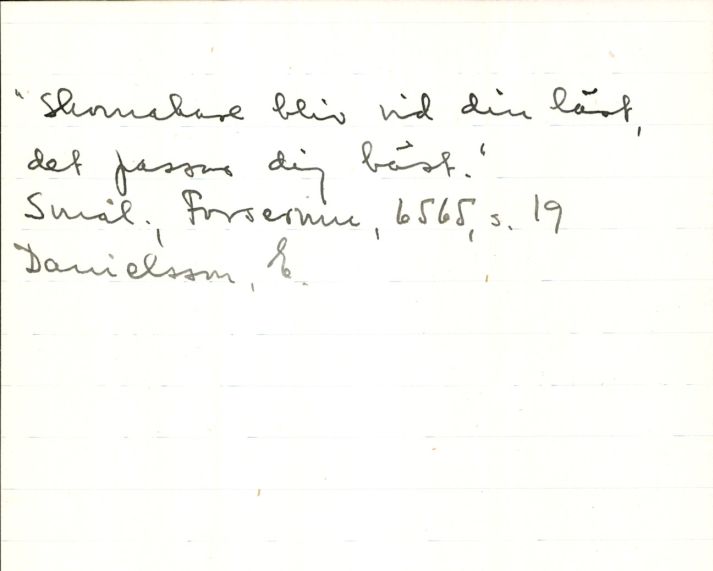 "Skomakare bliv vid din läst,
det passar dig bäst."
Smål., Forserum, 6565, s. 19
Danielsson, E.